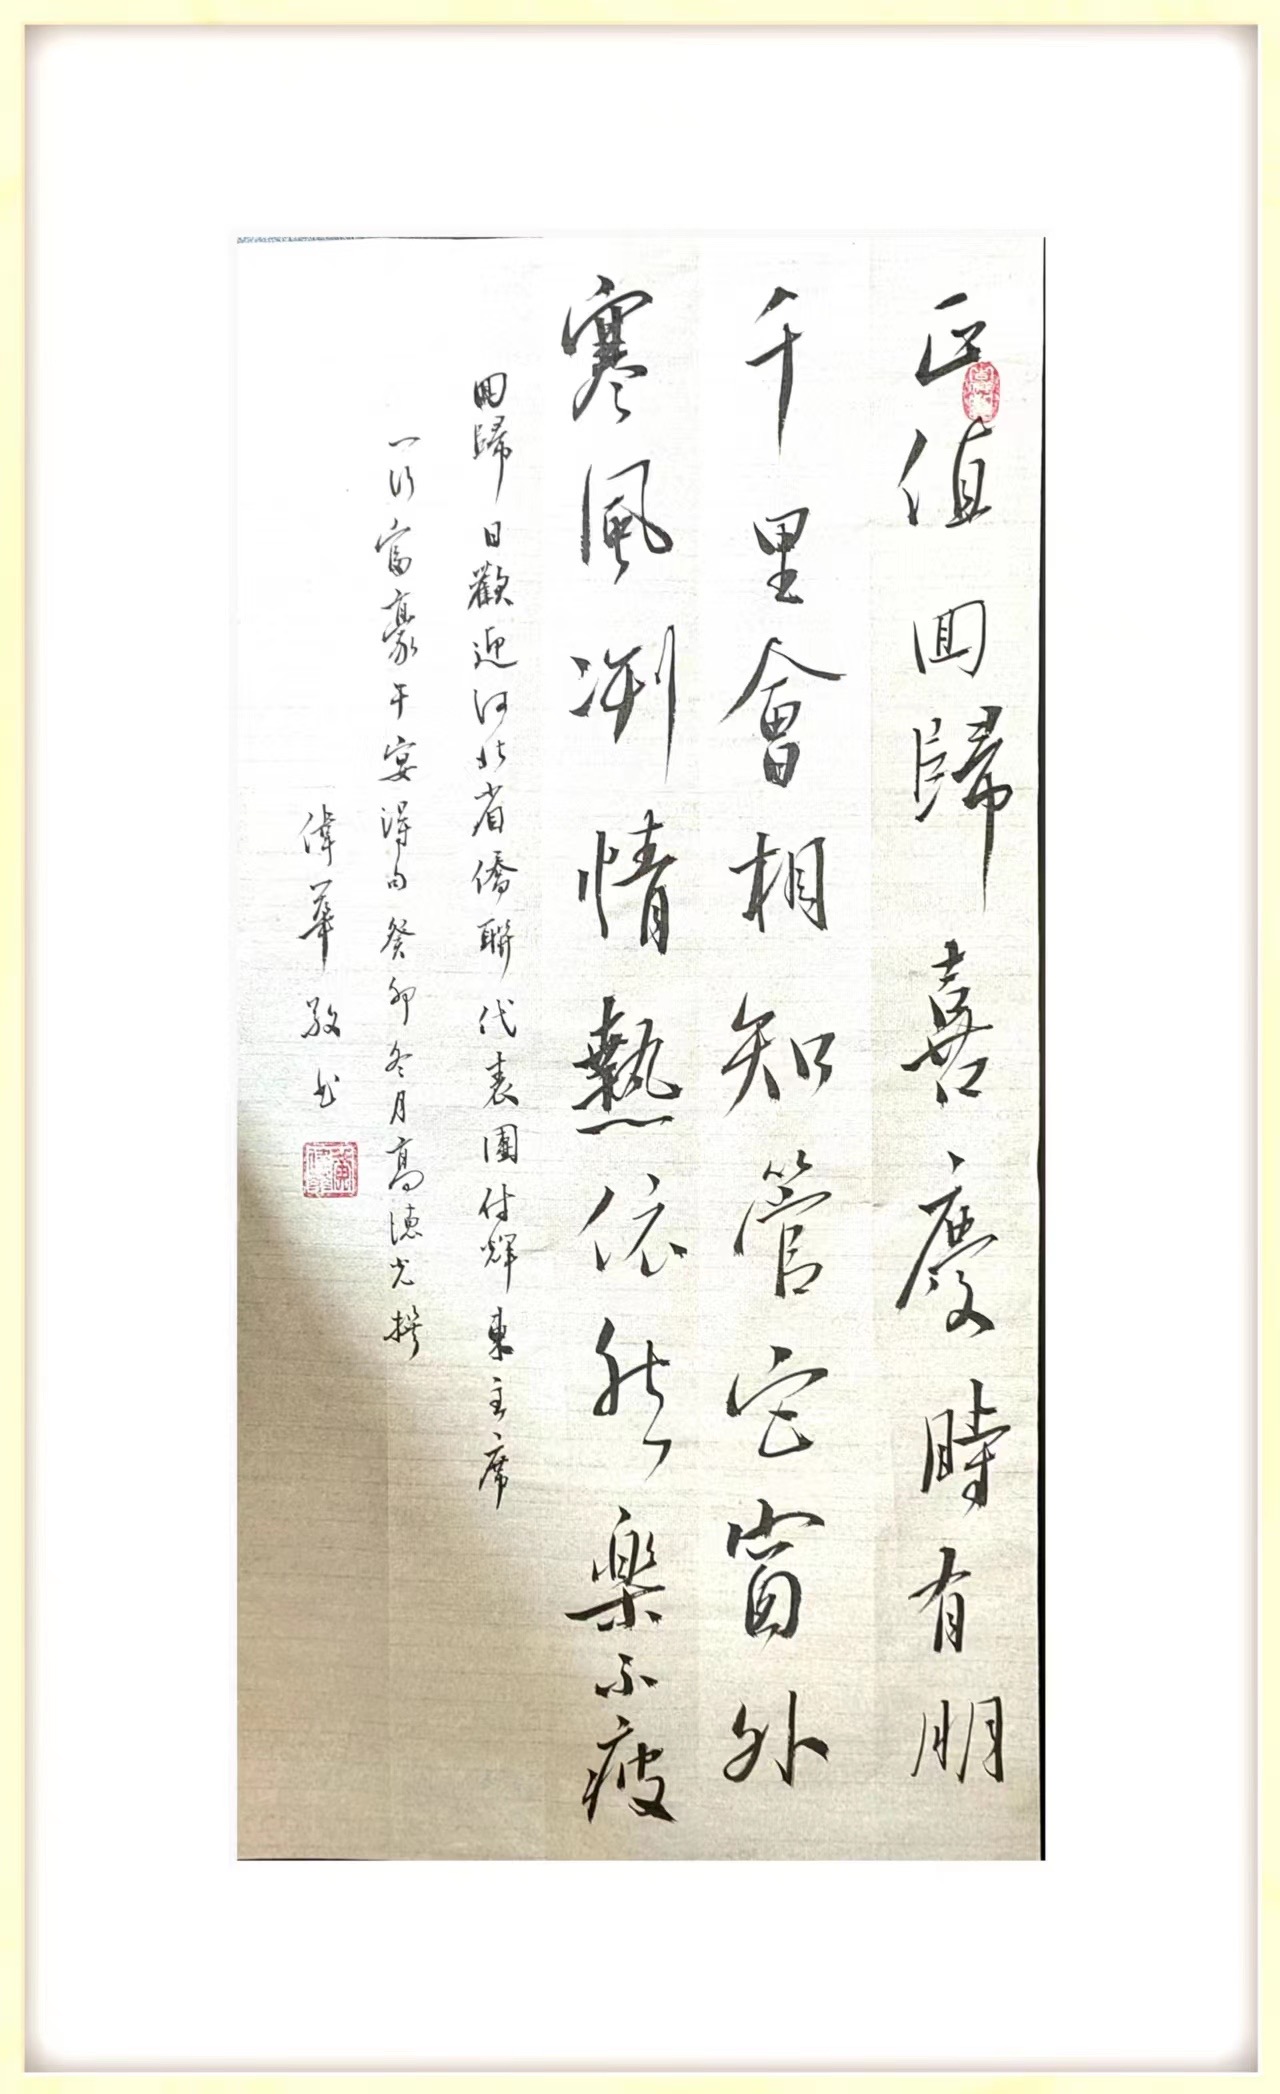 正值回歸喜慶時有朋
千里會相知管它窗外
寒風冽情熱依然樂不疲
回歸日歡迎河北省僑聯代表團付輝東主席
一行富豪午宴得句癸卯冬月高德光撰
偉華敬书